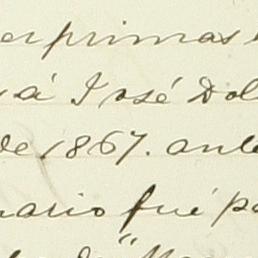 er primas
á José Dol
de 1867. ante
nario fué pa